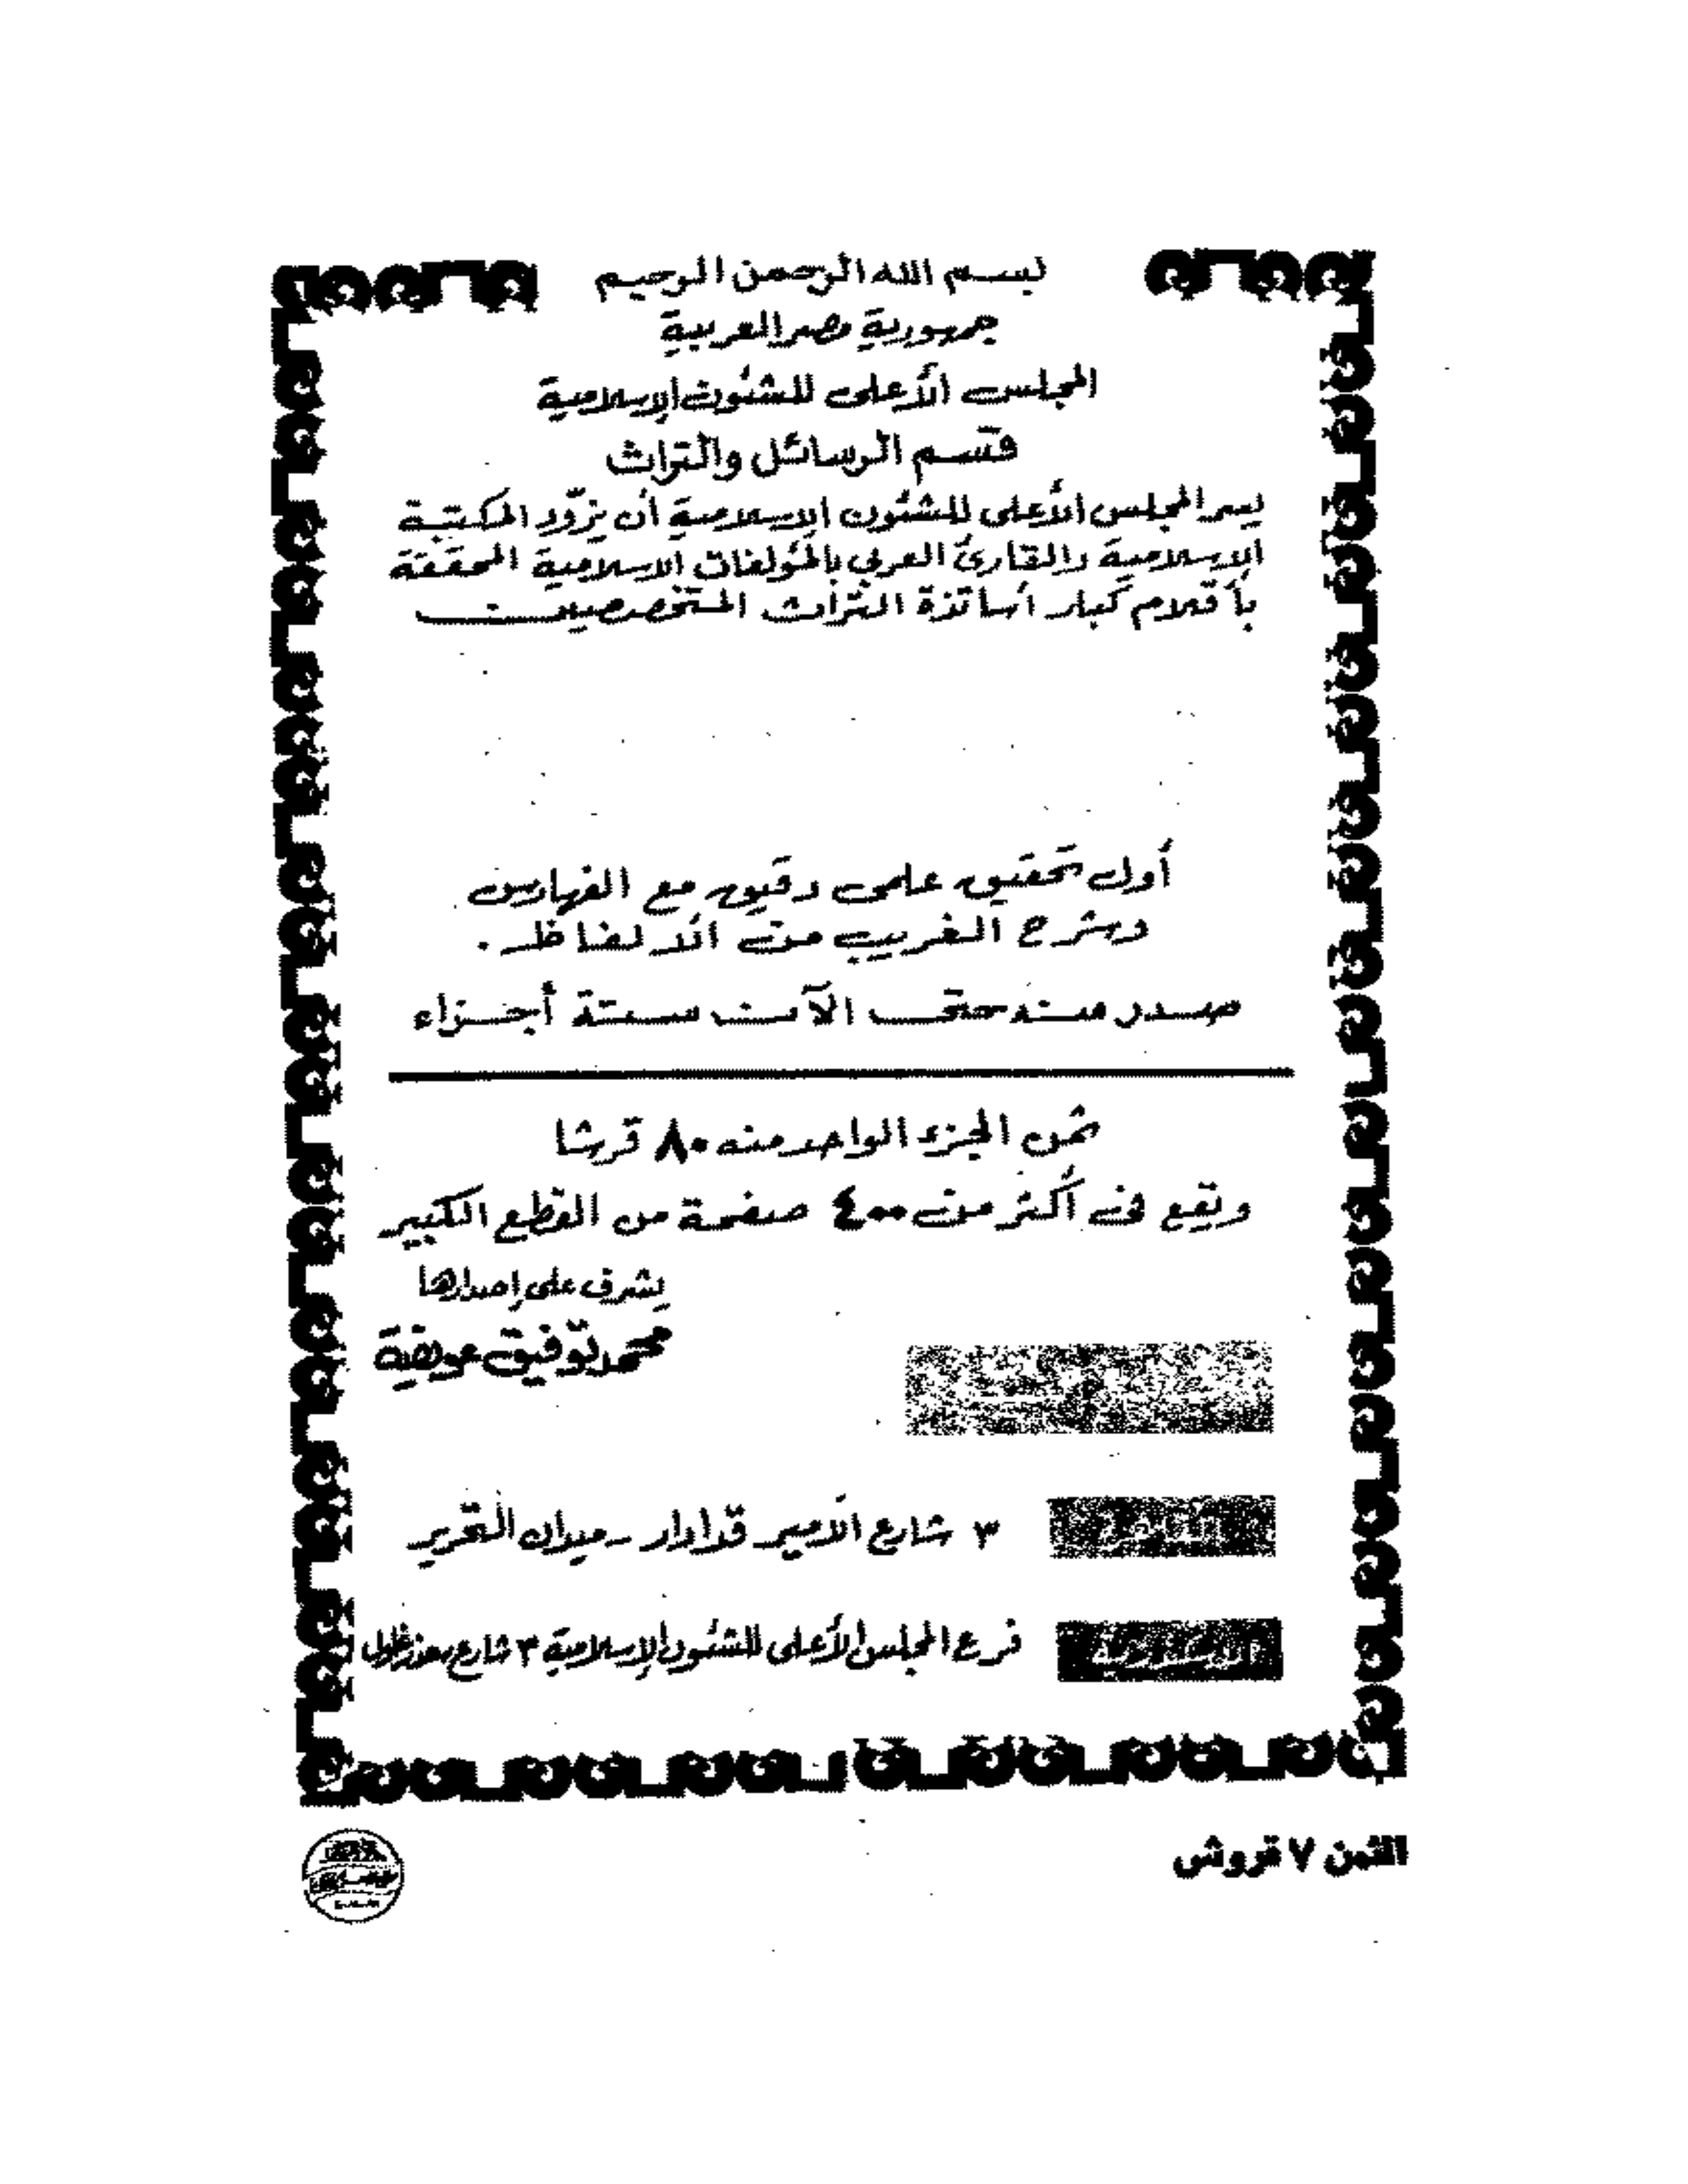 بسم الله الرحمن الرحيم
جمهورية مصر العربية
المجلس الأعلى للشئون الإسلامية
قسم الرسائل والتراث
يسر المجلس الأعلى للشئون الإسلامية أن يزوّد المكتبة
الإسلامية والقارئ العربى بالمؤلفات الإسلامية المحققة
بأقلام كبار أساتذة التراث المتخصصين
أول تحقيق علمى دقيق مع الفهارس
وشرح الغريب من الألفاظ .
صدر منه حتى الآن ستة أجزاء
ثمن الجزء الواحد منه ٨٠ قرشا
وتقع فى أكثر من ٤٠٠ صفحة من القطع الكبير
يشرف على إصدارها
محمد توفيق عويضة
٣ شارع الأمير قدادار - ميدان التحرير
فرع المجلس الأعلى للشئون الإسلامية ٣ شارع سعد زغلول
الثمن ٧ قروش